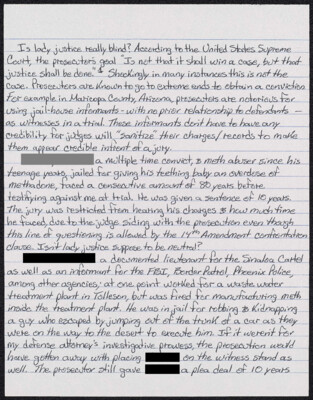 Is lady justice really blind? According to the United States Supreme
Court, the prosecuter's goal "Is not that it shall win a case, but that
justice shall be done." Shockingly in many instances this is not the
case. Prosecuters are known to go to extreme ends to obtain a conviction.
For example in Maricopa County, Arizona, prosecuters are notorious for
using jail-house informants - with no prior relationship to defendants -
as witnesses in a trial. These informants don't have to have any
credibility for judges will "sanitize" their charges/records to make
them appear credible infront of a jury.
a multiple time convict, & meth abuser since his
teenage years, jailed for giving his teething baby an overdose of
methadone, faced a consecutive amount of 80 years before
testifying against me at trial. He was given a sentence of 10 years.
The jury was restricted from hearing his charges & how much time
he faced, due to the judge siding with the prosecution even though
this line of questioning is allowed by the 14th Amendment confrontation
clause. Isn't lady justice suppose to be neutral?
a documented lieutenant for the Sinaloa Cartel
as well as an informant for the FBI, Border Patrol, Phoenix Police,
among other agencies, at one point worked for a waste water
treatment plant in Tolleson, but was fired for manufacturing meth
inside the treatment plant. He was in jail for robbing & kidnapping
a guy who escaped by jumping out of the trunk of a car as they
were on the way to the desert to execute him. If it weren't for
my defense attorney's investigative prowess, the prosecution would
have gotten away with placing on the witness stand as
well. The prosecuter still gave a plea deal of 10 years